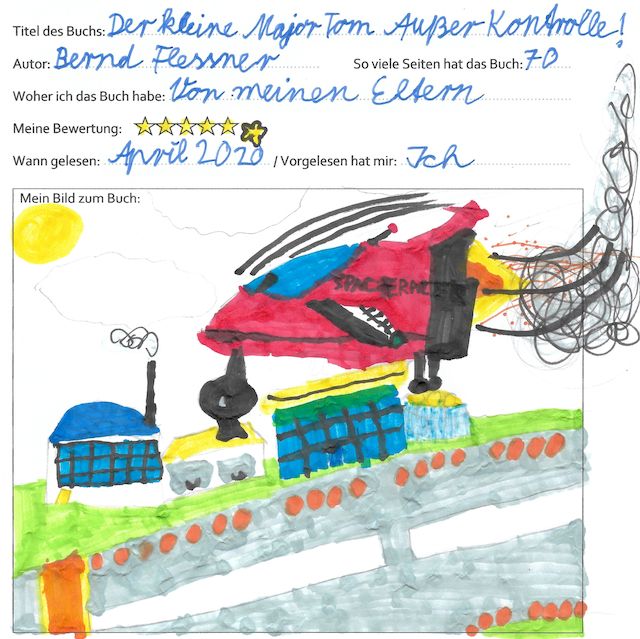 Titel des Buchs: Der kleine Major Tom Außer Kontrolle!
Autor: Bernd Flessner So viele Seiten hat das Buch: 70
Woher ich das Buch habe: Von meinen Eltern
Meine Bewertung:
Wann gelesen: April 2020 / Vorgelesen hat mir: Ich
Mein Bild zum Buch:
SPACERACER